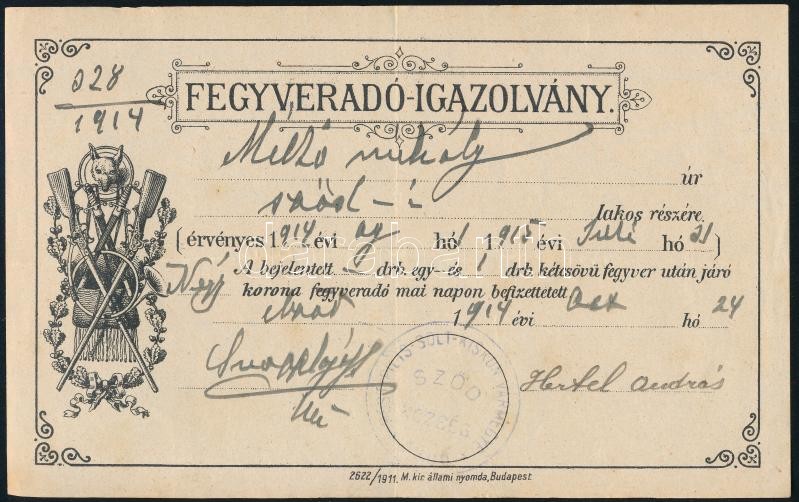 928
1914
FEGYVERADÓ-IGAZOLVÁNY.
Mihály
úr
sződ-i lakos részére
(érvényes 1914 évi aug hó 1 1915 évi Juli hó 31)
A bejelentett - drb. egy- és 1 drb. kétcsövű fegyver után járó
Négy korona fegyveradó mai napon befizettetett
Sződ 1914 évi hó 24
SOLT-KISKUN VÁRMEGYE
SZŐD
KÖZSÉG
Hertel András
2622/1911. M. kir. állami nyomda, Budapest
darabanth